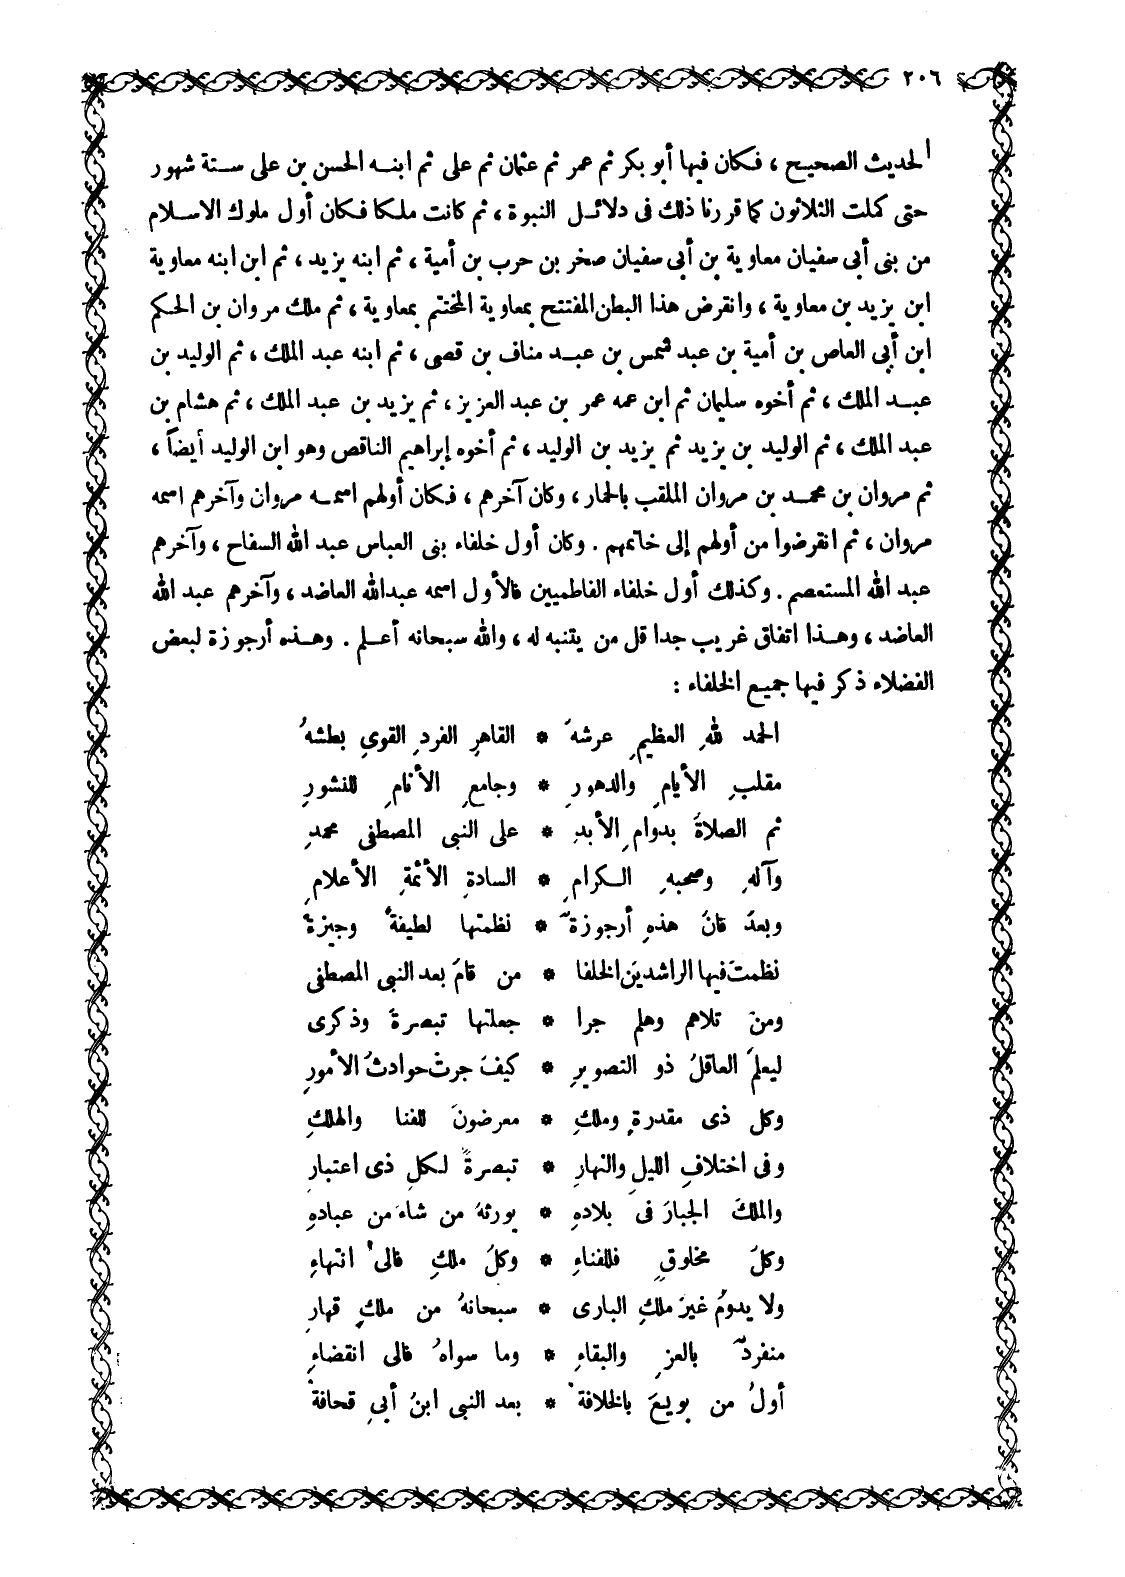 ٢٠٦
الحديث الصحيح ، فكان فيها أبو بكر ثم عمر ثم عثمان ثم على ثم ابنه الحسن بن على ستة شهور
حتى كملت الثلاثون كما قررنا ذلك فى دلائل النبوة ، ثم كانت ملكا فكان أول ملوك الاسلام
من بنى أبى سفيان معاوية بن أبى سفيان صخر بن حرب بن أمية ، ثم ابنه يزيد ، ثم ابن ابنه معاوية
ابن يزيد بن معاوية ، وانقرض هذا البطن المفتتح بمعاوية المختتم بمعاوية ، ثم ملك مروان بن الحكم
ابن أبى العاص بن أمية بن عبد شمس بن عبد مناف بن قصى ، ثم ابنه عبد الملك ، ثم الوليد بن
عبد الملك ، ثم أخوه سليمان ثم ابن عمه عمر بن عبد العزيز ، ثم يزيد بن عبد الملك ، ثم هشام بن
عبد الملك ، ثم الوليد بن يزيد ثم يزيد بن الوليد ، ثم أخوه إبراهيم الناقص وهو ابن الوليد أيضاً ،
ثم مروان بن محمد بن مروان الملقب بالحمار ، وكان آخرهم ، فكان أولهم اسمه مروان وآخرهم اسمه
مروان ، ثم انقرضوا من أولهم إلى خاتمهم . وكان أول خلفاء بنى العباس عبد الله السفاح ، وآخرهم
عبد الله المستعصم . وكذلك أول خلفاء الفاطميين فالأول اسمه عبدالله العاضد ، وآخرهم عبد الله
العاضد ، وهذا اتفاق غريب جدا قل من يتنبه له ، والله سبحانه أعلم . وهذه أرجوزة لبعض
الفضلاء ذكر فيها جميع الخلفاء :
الحمد للهِ العظيمِ عرشهَ * القاهرِ الفردِ القوىِ بطشهُ
مقلبِ الأيامِ والدهورِ * وجامعِ الأنامِ للنشورِ
ثم الصلاةَ بدوامِ الأبدِ * على النبى المصطفى محمدِ
وآلهِ وصحبهِ الكرامِ * السادةِ الأئمةِ الأعلامِ
وبعدَ فانَ هذهِ أرجوزةٌ * نظمتها لطيفةٌ وجيزةٌ
نظمتَ فيها الراشدينَ الخلفا * من قامَ بعد النبى المصطفى
ومنَ تلاهم وهلم جرا * جعلتها تبصرةً وذكرى
ليعلمَ العاقلُ ذو التصويرِ * كيفَ جرتْ حوادثُ الأمورِ
وكل ذى مقدرةٍ وملكِ * معرضونَ للفنا والهلكِ
وفى اختلافِ الليلِ والنهارِ * تبصرةٌ لكلِ ذى اعتبارِ
والملكَ الجبارَ فىَ بلادهِ * يورثهُ من شاءَ من عبادهِ
وكلَ مخلوقٍ فللفناءِ * وكلَ ملكِ فالى انتهاءِ
ولا يدومُ غيرَ ملكِ البارى * سبحانهُ من ملكٍ قهارِ
منفردٌ بالعزِ والبقاءِ * وما سواهُ فالى انقضاءِ
أولُ من بويعَ بالخلافةْ * بعد النبى ابنُ أبىِ قحافةْ